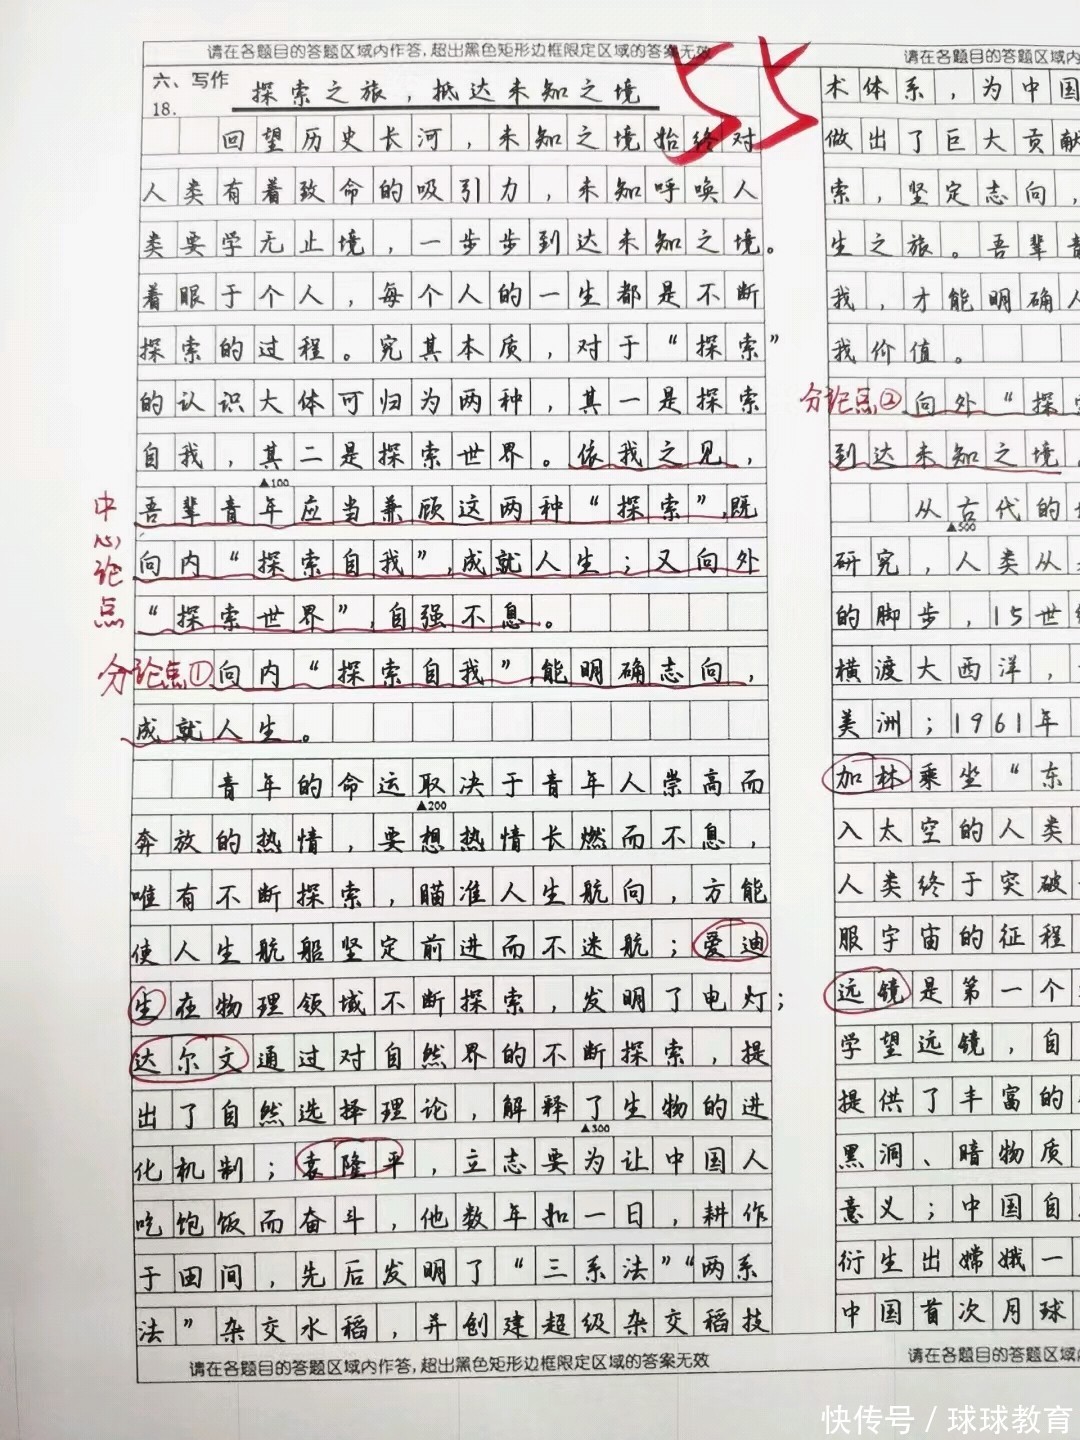 请在各题目的答题区域内作答,超出黑色矩形边框限定区域的答案无效
55
六、写作
18.
探索之旅，抵达未知之境
回望历史长河，未知之境始终对
人类有着致命的吸引力，未知呼唤人
类要学无止境，一步步到达未知之境。
着眼于个人，每个人的一生都是不断
探索的过程。究其本质，对于“探索”
的认识大体可归为两种，其一是探索
自我，其二是探索世界。依我之见，
▲100
中心论点
吾辈青年应当兼顾这两种“探索”,既
向内“探索自我”,成就人生；又向外
“探索世界”,自强不息。
分论点①
向内“探索自我”能明确志向，
成就人生。
青年的命运取决于青年人崇高而
▲200
奔放的热情，要想热情长燃而不息，
唯有不断探索，瞄准人生航向，方能
使人生航船坚定前进而不迷航；爱迪
生在物理领域不断探索，发明了电灯；
达尔文通过对自然界的不断探索，提
出了自然选择理论，解释了生物的进
▲300
化机制；袁隆平，立志要为让中国人
吃饱饭而奋斗，他数年如一日，耕作
于田间，先后发明了“三系法”“两系
法”杂交水稻，并创建超级杂交稻技
请在各题目的答题区域内作答,超出黑色矩形边框限定区域的答案无效
请在各题目的答题区域内
术体系，为中国
做出了巨大贡献
索，坚定志向，
生之旅。吾辈青
我，才能明确人
我价值。
分论点②
向外“探索
到达未知之境
从古代的
▲500
研究，人类从
的脚步，15世纪
横渡大西洋，
美洲；1961年
加林乘坐“东
入太空的人类
人类终于突破
服宇宙的征程
远镜是第一个
学望远镜，自
提供了丰富的
黑洞、暗物质
意义；中国自
衍生出嫦娥一
中国首次月球
请在各题目的答题区域
快传号 / 球球教育